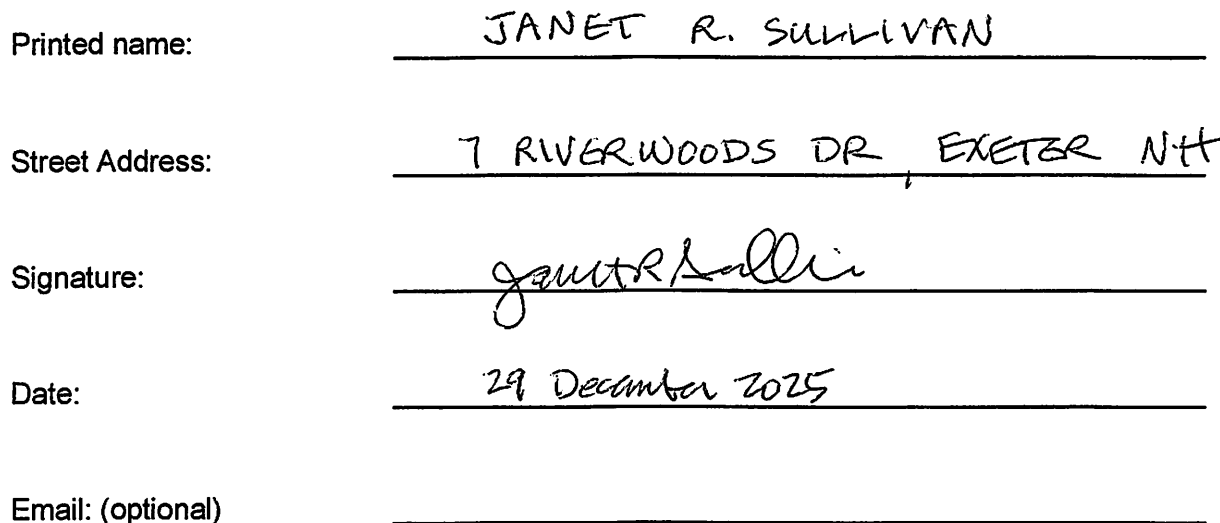 Printed name: JANET R. SULLIVAN
Street Address: 7 RIVERWOODS DR, EXETER NH
Signature: Janet R Sulli
Date: 29 December 2025
Email: (optional)